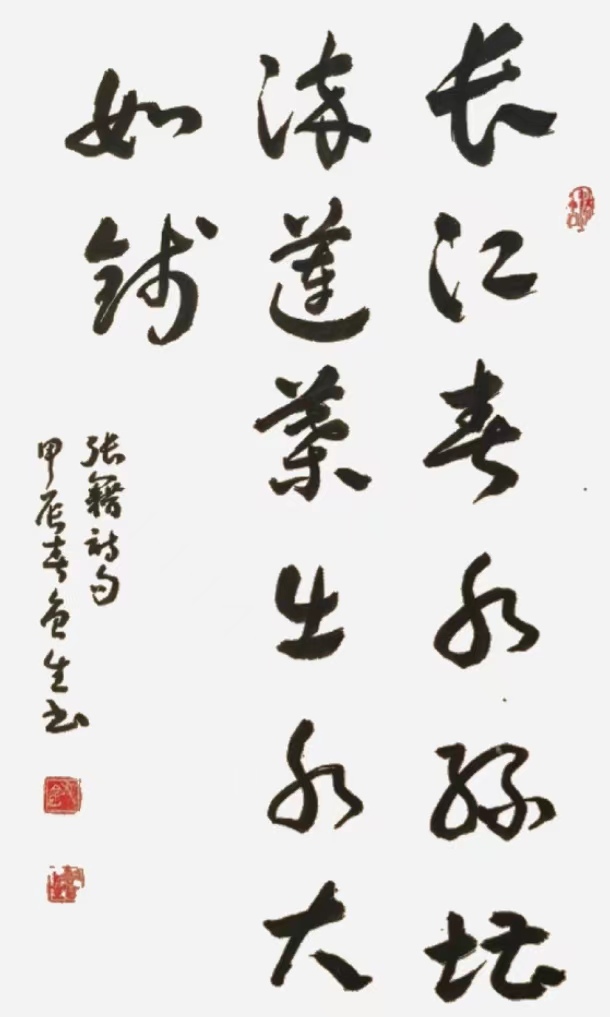 长江春水绿堪
染蓮葉出水大
如錢
张籍诗句
甲辰春生书